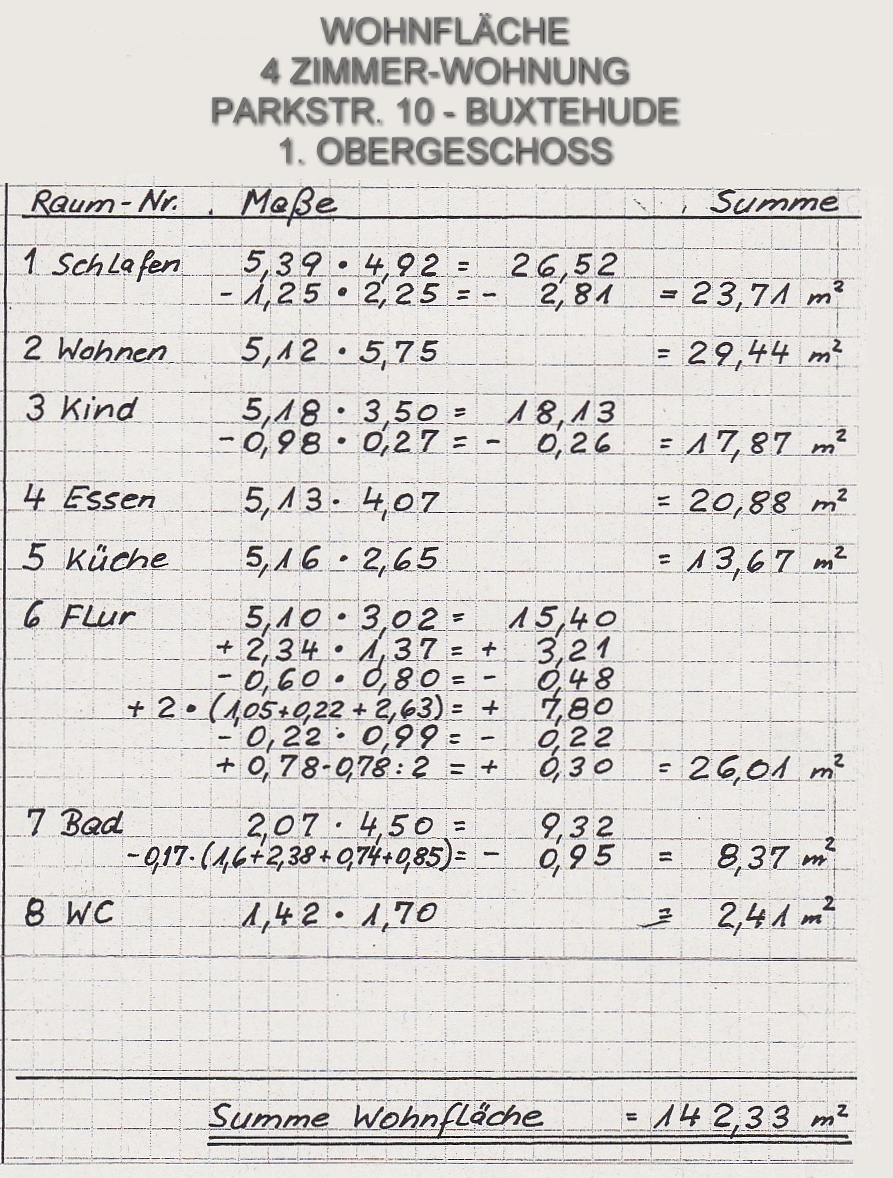 WOHNFLÄCHE
4 ZIMMER-WOHNUNG
PARKSTR. 10 - BUXTEHUDE
1. OBERGESCHOSS
Raum-Nr. Maße Summe
1 Schlafen 5,39 · 4,92 = 26,52
- 1,25 · 2,25 = - 2,81 = 23,71 m²
2 Wohnen 5,12 · 5,75 = 29,44 m²
3 Kind 5,18 · 3,50 = 18,13
- 0,98 · 0,27 = - 0,26 = 17,87 m²
4 Essen 5,13 · 4,07 = 20,88 m²
5 Küche 5,16 · 2,65 = 13,67 m²
6 Flur 5,10 · 3,02 = 15,40
+ 2,34 · 1,37 = + 3,21
- 0,60 · 0,80 = - 0,48
+ 2 · (1,05+0,22 + 2,63) = + 7,80
- 0,22 · 0,99 = - 0,22
+ 0,78-0,78 : 2 = + 0,30 = 26,01 m²
7 Bad 2,07 · 4,50 = 9,32
- 0,17 · (1,6+2,38+0,74+0,85) = - 0,95 = 8,37 m²
8 WC 1,42 · 1,70 = 2,41 m²
Summe Wohnfläche = 142,33 m²